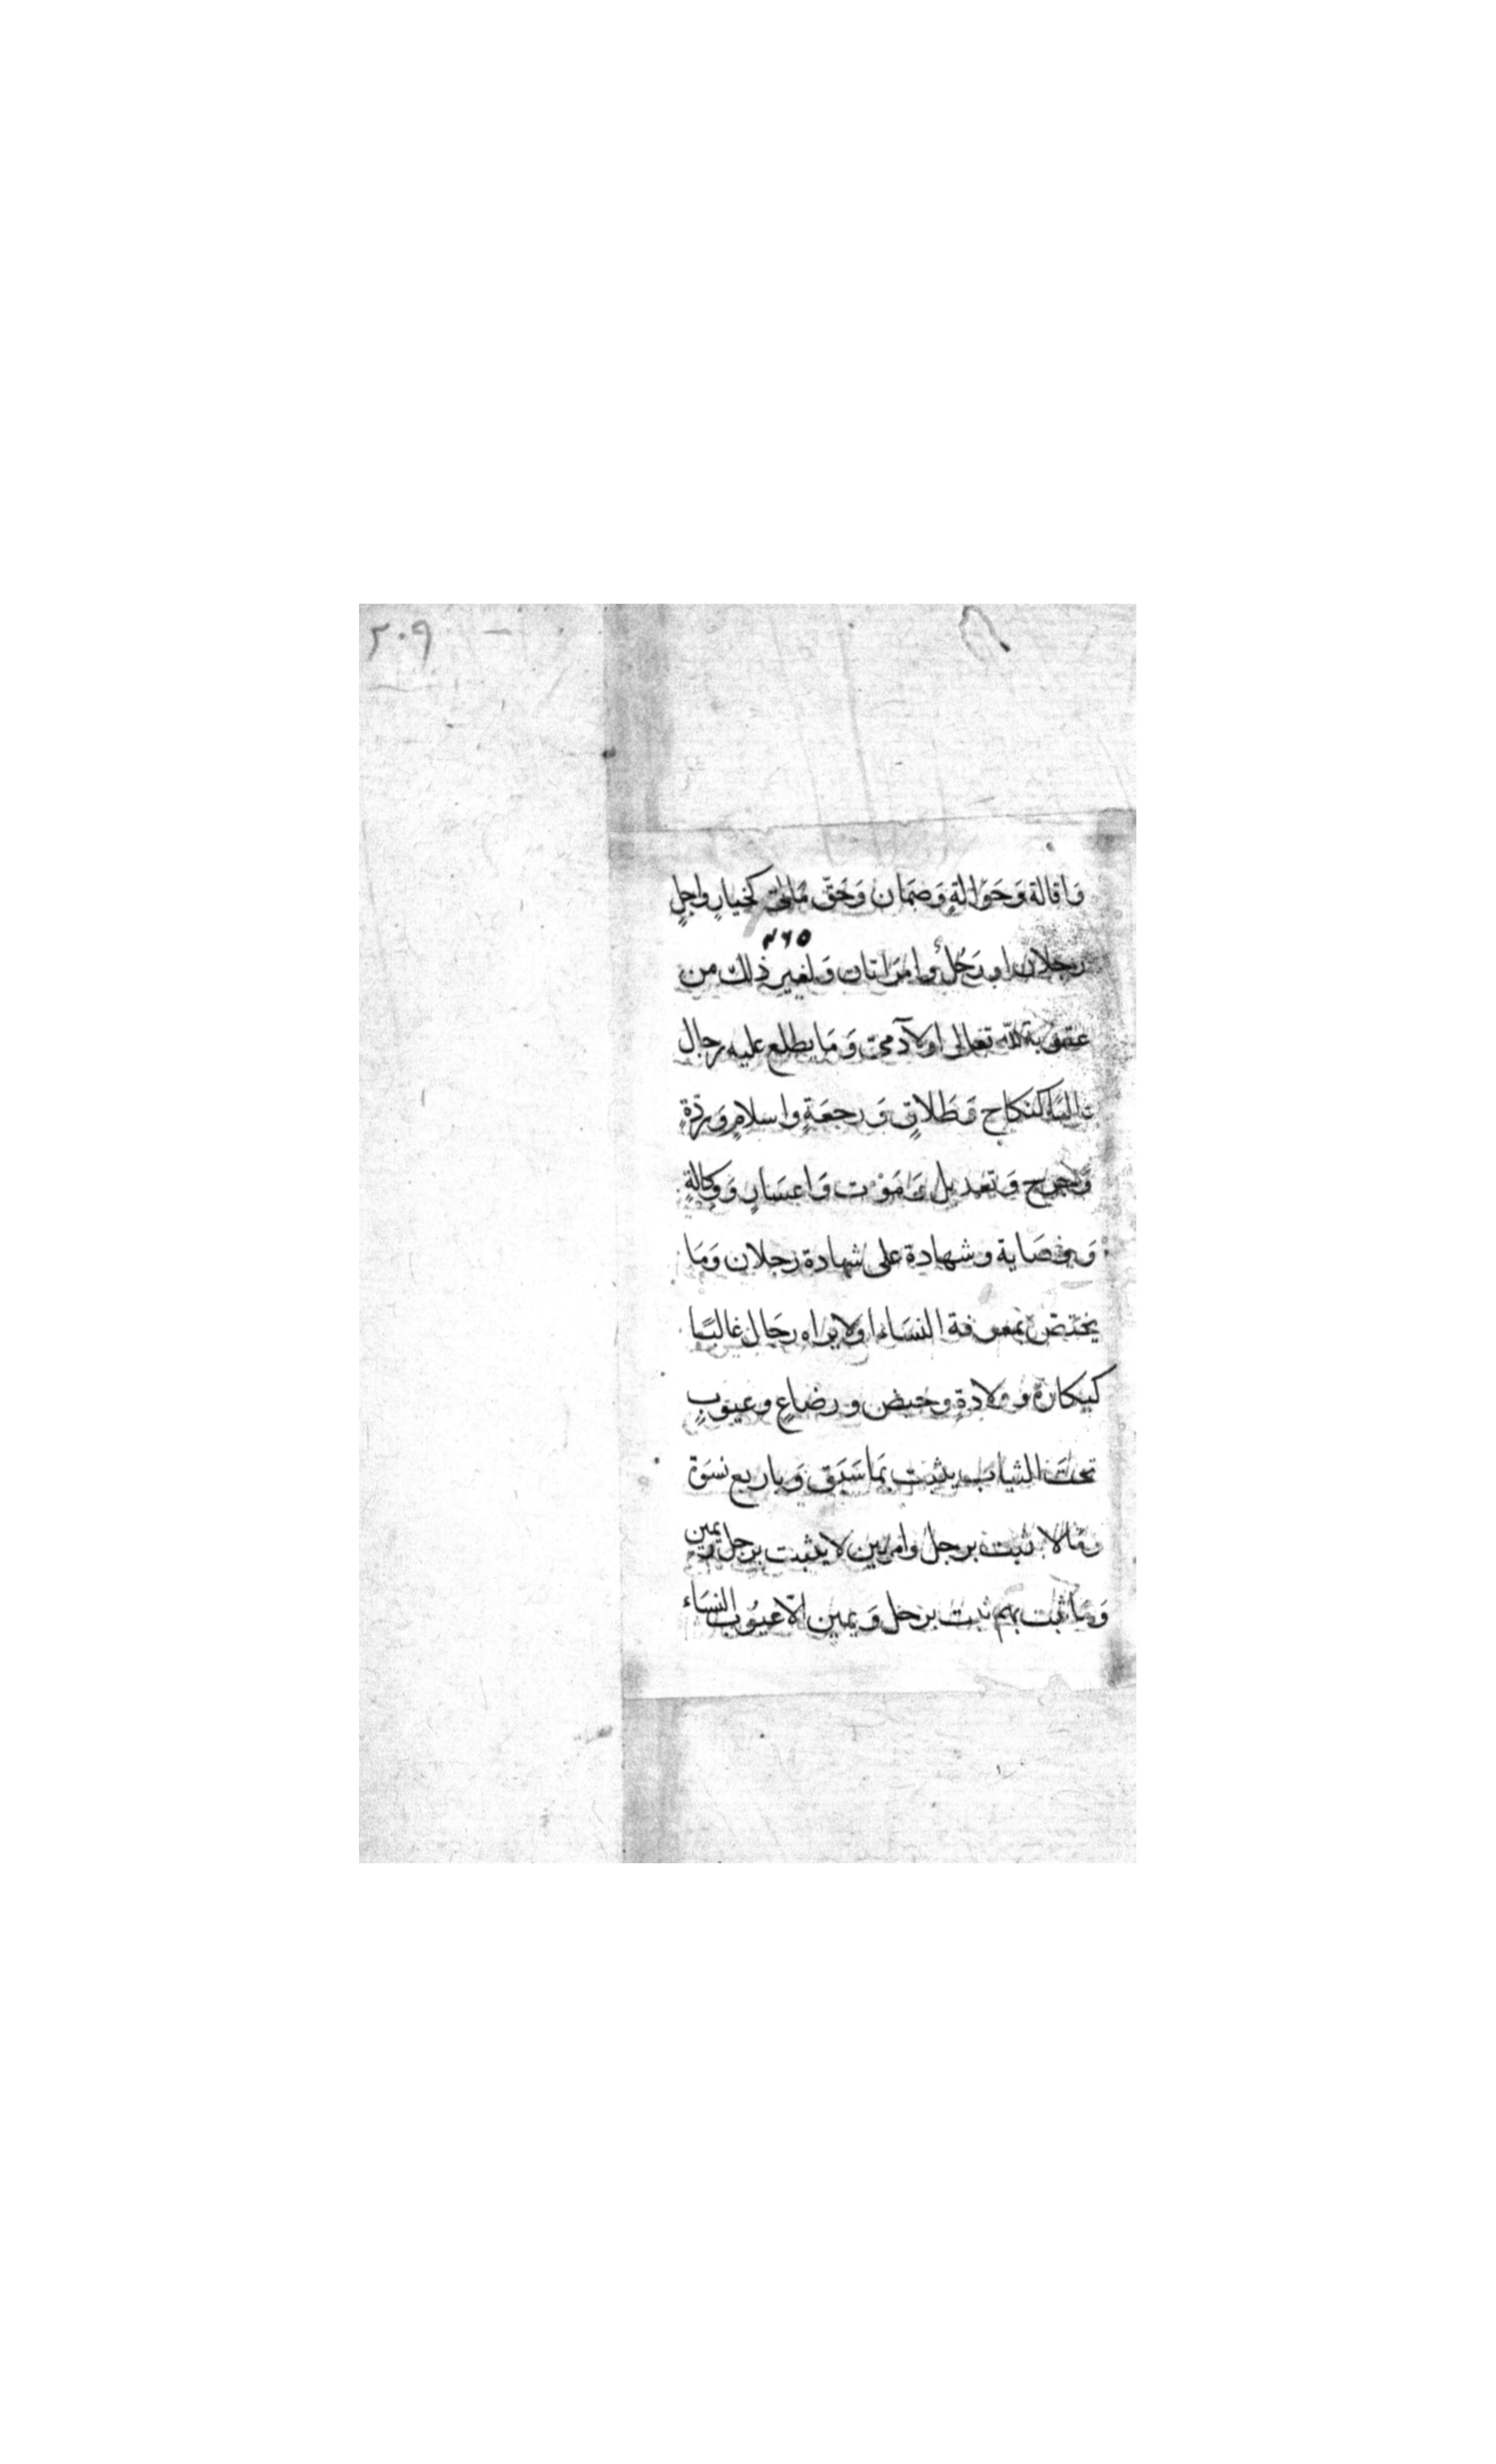 ٢٠٩
وَاقالة وَحَوَالةٍ وَضمَان وَحَقّ مَاليّ كخيارٍ واجلٍ
٢٦٥
رجلان او رَجُل وامرَاتان وَلغير ذلك من
عقوبة لله تعالى او لآدميّ وَمَا يطلع عليه رجال
غالبًا كنكاح وَطَلاقٍ وَرجعَةٍ واسلامٍ وَرِدّةٍ
وَجرح وَتعديل وَمَوْت وَاعسَارٍ وَوكالةٍ
وَوصَاية وشهادة على شهادة رجلان وَمَا
يختصّ بمعرفة النسَاء او لا يراه رجَال غالبًا
كبكارة وولادةٍ وحيض ورضاعٍ وعيوبٍ
تحت الثياب يثبت بمَا سَبَق وَباربع نسوَة
ومَا لا يثبت برجل وامراتين لا يثبت برجل ويمين
وَمَا ثبت بهم ثبت برجل وَيمين الّا عيُوب النسَاء